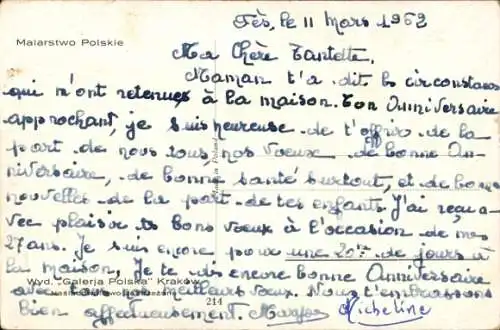 Malarstwo Polskie
Fès, le 11 Mars 1962
Ma Chère Tantette,
Maman t'a dit les circonstances
qui m'ont retenues à la maison. Ton Anniversaire
approchant, je suis heureuse de t'offrir de la
part de nous tous, nos voeux de bonne An-
niversaire, de bonne santé surtout, et de bonnes
nouvelles de la part de tes enfants. J'ai reçu a-
vec plaisir tes bons voeux à l'occasion de mes
27 ans. Je suis encore pour une 20ne de jours à
la maison, Je te dis encore Bonne Anniversaire
Wyd. "Galerja Polska" Kraków
avec tous nos meilleurs voeux. Nous t'embrassons
bien affectueusement.
Micheline
214